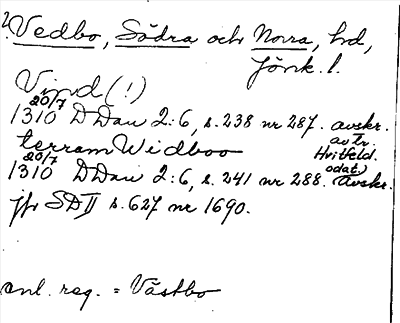 ? Vedbo, Södra och Norra, hd,
Jönk. l.
Vind (!)
1310 20/7 DDan 2:6, s. 238 nr 287. avskr.
av tr.
Hvitfeld.
terram Widboo
1310 20/7 DDan 2:6, s. 241 nr 288. (odat.) Avskr.
jfr SD II s. 627 nr 1690.
enl. reg. = Västbo